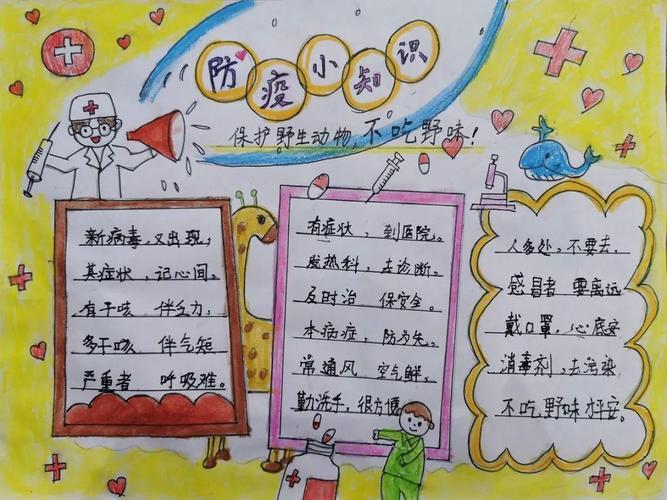 防疫小知识
保护野生动物,不吃野味!
新病毒,又出现,
其症状,记心间。
有干咳 伴乏力,
多干咳 伴气短
严重者 呼吸难。
有症状,到医院。
发热科,去诊断。
及时治 保安全。
本病症,防为先。
常通风 空气鲜。
勤洗手,很方便
人多处,不要去,
感冒者 要离远
戴口罩,心底安
消毒剂,去污染
不吃野味才平安。